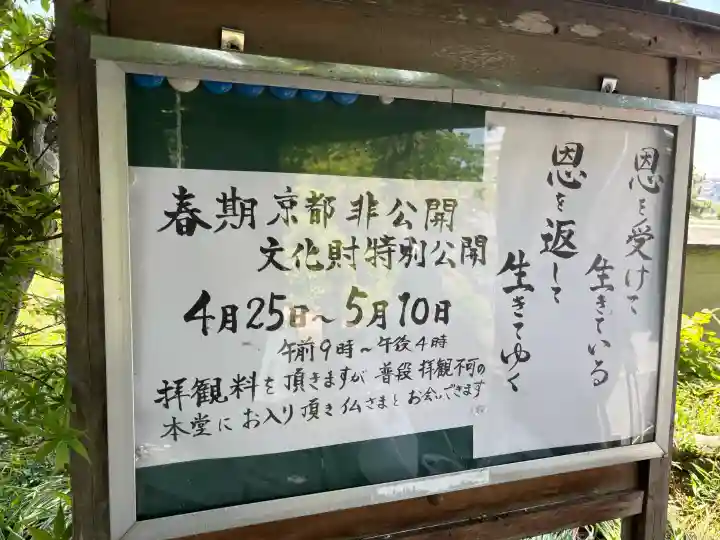 恩を受けて
生きている
恩を返して
生きてゆく
春期京都非公開
文化財特別公開
4月25日～5月10日
午前9時～午後4時
拝観料を頂きますが普段拝観不可の
本堂にお入り頂き仏さまとお会いできます